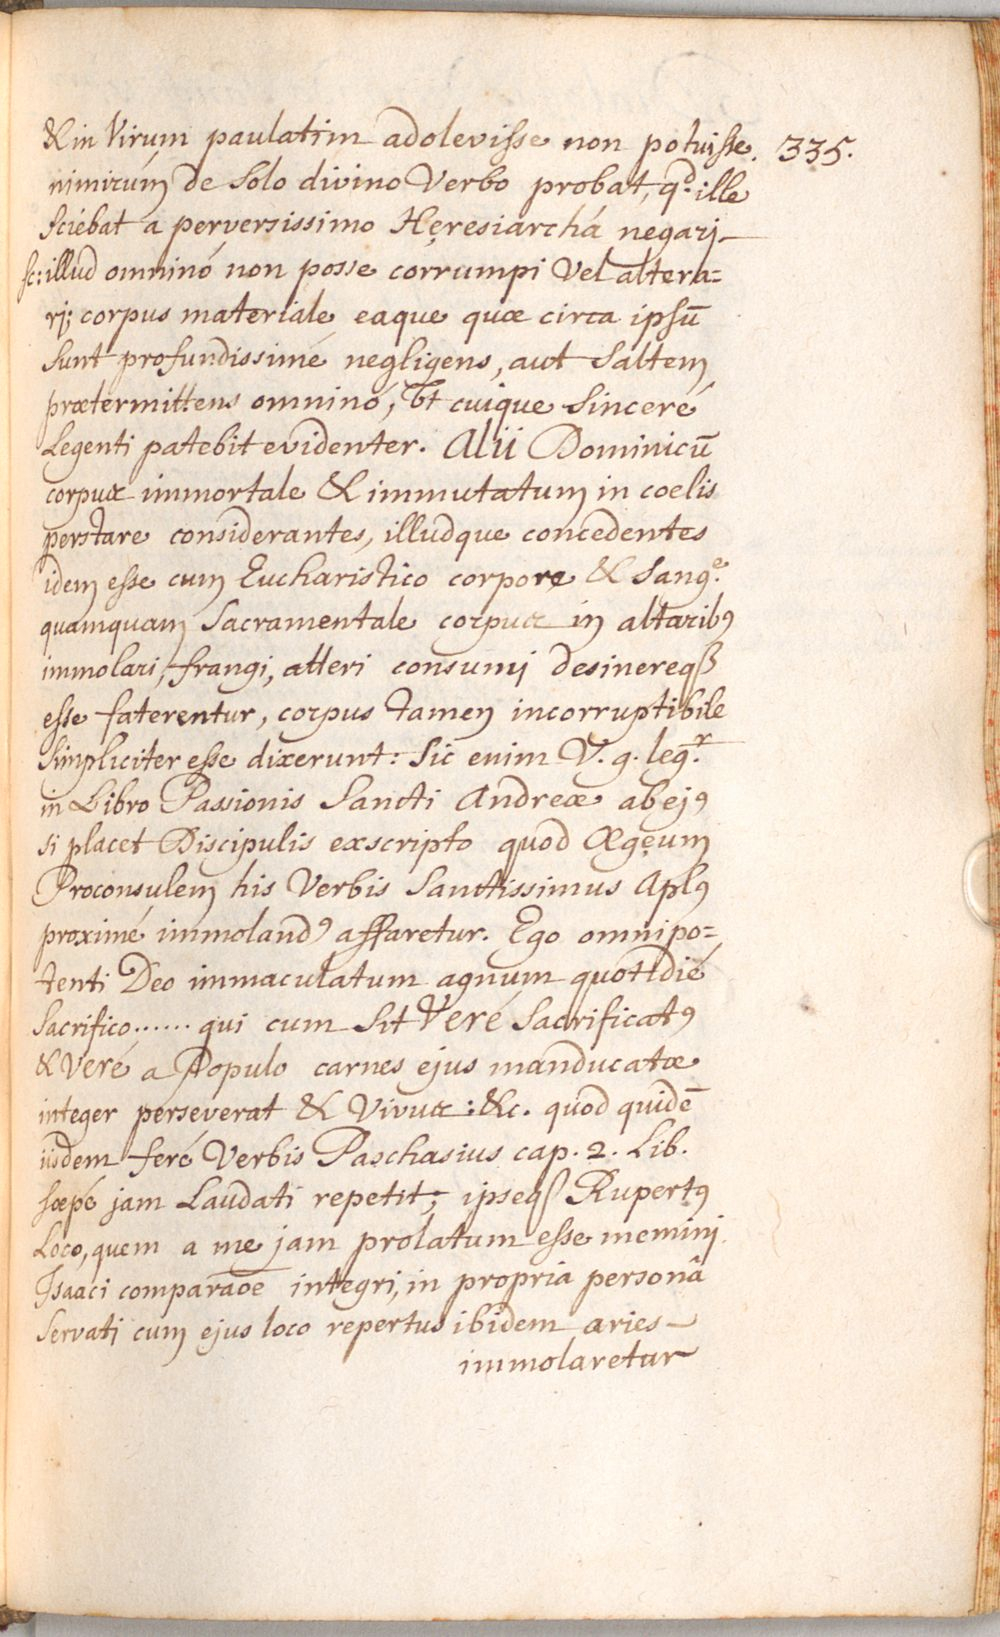 & in Virum paulatim adolevisse non potuisse. 335.
nimirúm de Solo divino Verbo probat, q.d ille
sciebat a perversissimo Hęresiarchá negari
sc: illud omninó non posse corrumpi Vel altera=
rj; corpus materiale eaque quæ circa ipsū
sunt profundissimé negligens, aut Saltem
prætermittens omninó, Vt cuique Sinceré
Legenti patebit evidenter. Alii Dominicū
corpus immortale & immutatum in coelis
perstare considerantes, illudque concedentes
idem esse cum Eucharistico corpore & Sang.e
quamquam Sacramentale corpus in altarib9
immolari, frangi, atteri consumi desinereqß
esse faterentur, corpus tamen incorruptibile
Simpliciter esse dixerunt: Sic enim V. g. leg.r
in Libro Passionis Sancti Andreæ ab ej9
si placet Discipulis exscripto quod Ægęum
Proconsulem his Verbis Sanctissimus Apl9
proximé immoland9 affaretur. Ego omnipo=
tenti Deo immaculatum agnum quotidié
Sacrifico...... qui cum Sit Veré Sacrificat9
& Veré a Populo carnes ejus manducatæ
integer perseverat & Vivus: &c. quod quidē
iisdem feré Verbis Paschasius cap. 2. Lib.
sæpé jam Laudati repetit; ipseqß Rupert9
Loco, quem a me jam prolatum esse memini
Isaaci comparaōe integri, in propria personâ
Servati cum ejus loco repertus ibidem aries
immolaretur